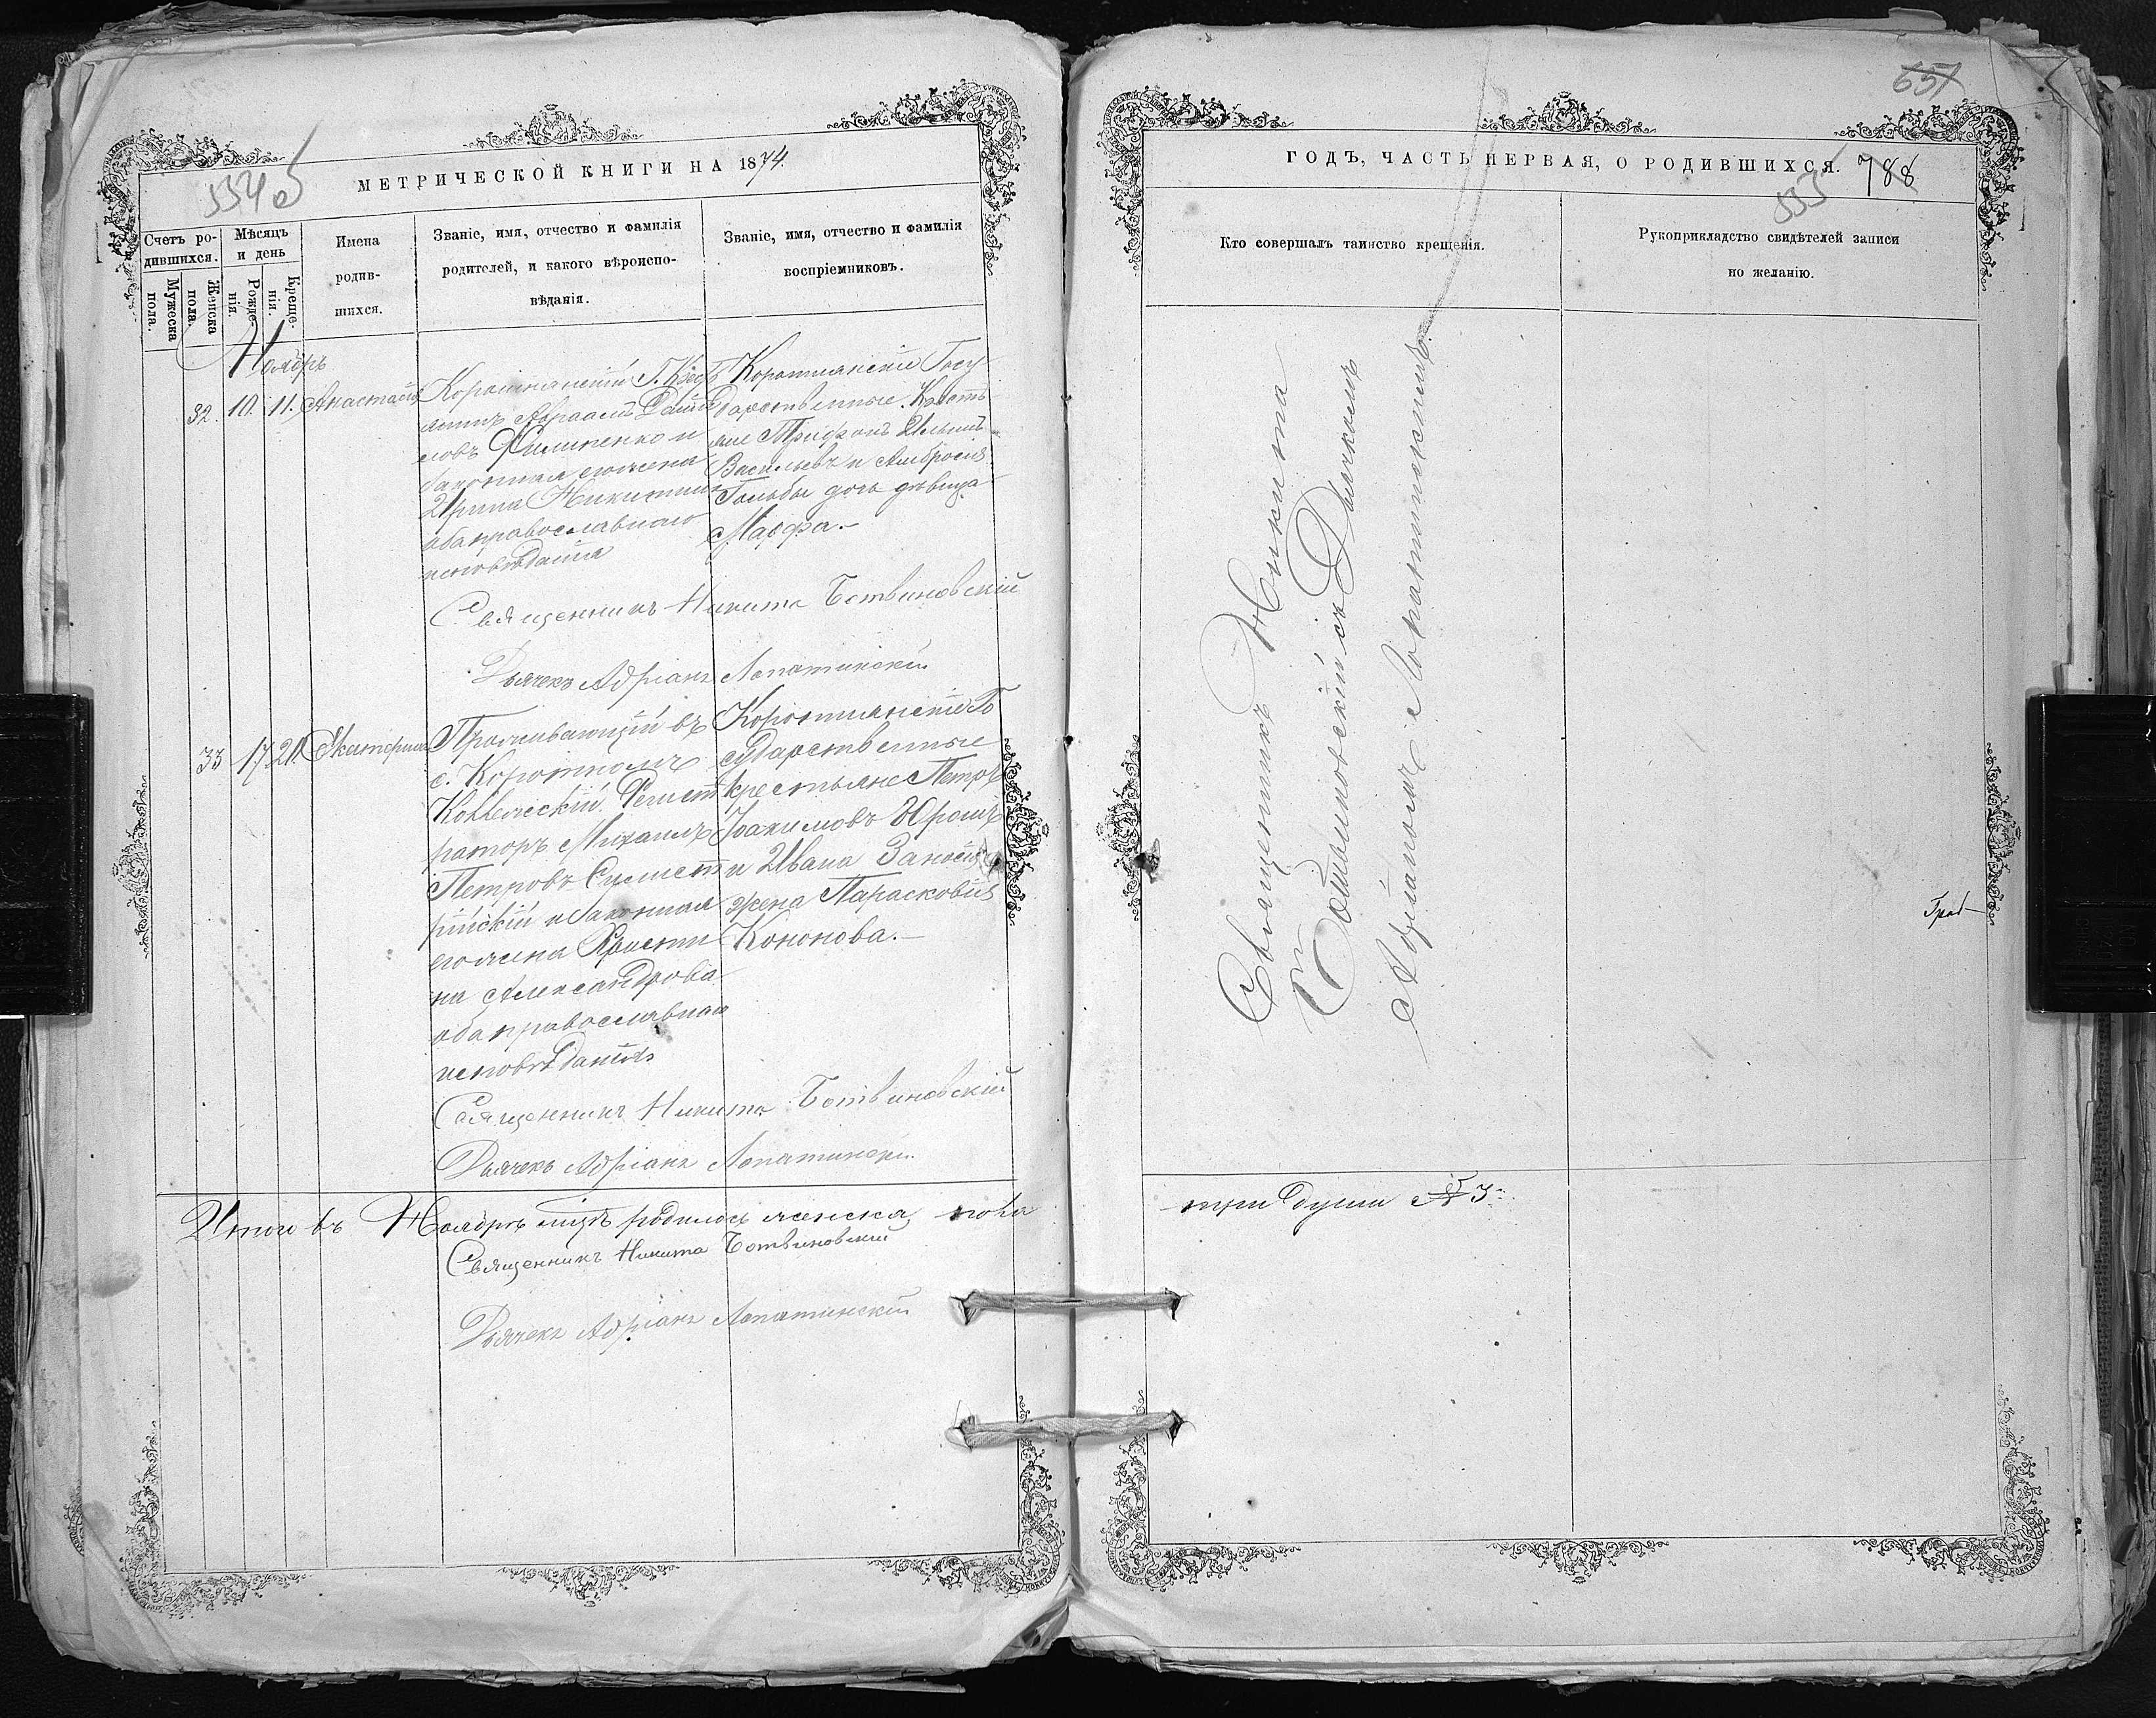 554 об
МЕТРИЧЕСКОЙ КНИГИ НА 1874.
Счетъ ро-
дившихся.
Мужеска
пола.
Женска
пола.
Мѣсяцъ
и день
Рожде-
нія
Креще-
нія.
Имена
родив-
шихся.
Званіе, имя, отчество и фамилія
родителей, и какого вѣроиспо-
вѣданія.
Званіе, имя, отчество и фамилія
воспріемниковъ.
Ноябрь
32. 10. 11. Анастасія
Коротнянскій Г. Крестъ
янинъ Авраамъ Даніи
ловъ Филипенко и
законная его жена
Ирина Никитина
оба православнаго
исповѣданія
Коротнянскіе Госу
дарственные Крестъ
яне Трифонъ
Васильевъ и Амвросія
дочь дѣвица
Марфа.-
Священникъ Никита Ботвиновскій
Дьячекъ Адріанъ Лопатинскій
33 17 21. Екатерина
Проживающій въ
с. Коротномъ
Коллежскій Регист
раторъ Михаилъ
Петровъ
рійскій и законная
его жена Христи
на Александрова
оба православнаго
исповѣданія
Коротнянскіе Го
сударственные
крестьяне Петръ
Іоакимовъ
и Ивана
жена Парасковія
Кононова.-
Священникъ Никита Ботвиновскій
Дьячекъ Адріанъ Лопатинскій
Итого въ Ноябрѣ мцѣ родилось женска пола
Священникъ Никита Ботвиновскій
Дьячекъ Адріанъ Лопатинскій
651
ГОДЪ, ЧАСТЬ ПЕРВАЯ, О РОДИВШИХСЯ.
788
555
Кто совершалъ таинство крещенія.
Рукоприкладство свидѣтелей записи
по желанію.
Священникъ Никита
Ботвиновскій съ Дьячкомъ
Адріаномъ Лопатинскимъ.
три души 3-